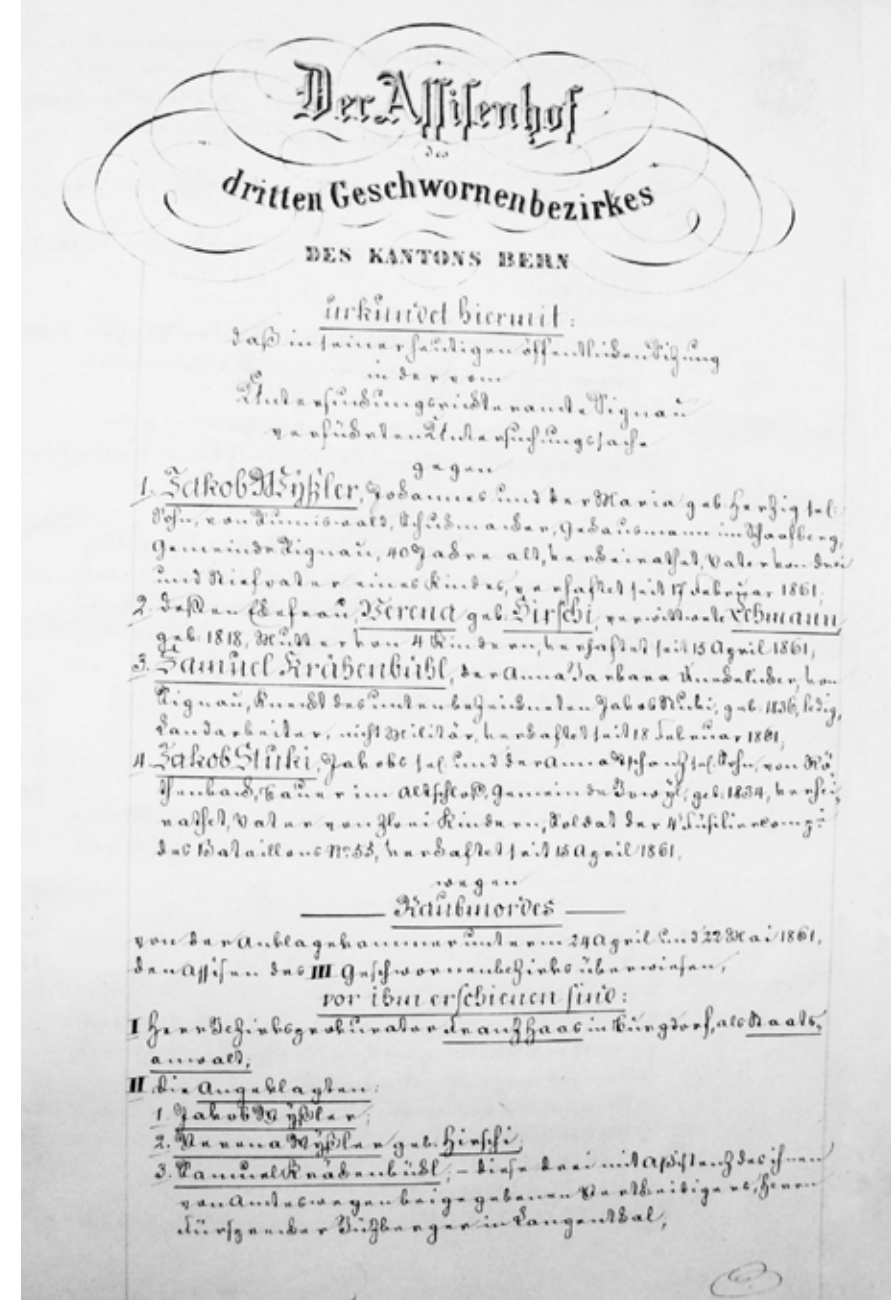 Der Assisenhof
des
dritten Geschwornenbezirkes
DES KANTONS BERN
urkundet hiermit:
daß in seiner heutigen öffentlichen Sitzung
in der vom
Untersuchungsrichteramte Signau
verführten Untersuchungssache
gegen
1. Jakob Wyßler, Johannes und der Maria geb. Herzig sel.
Sohn, von Sumiswald, Schuhmacher, Gehausmann im Schafberg,
Gemeinde Signau, 40 Jahre alt, verheirathet, Vater von drei
und Stiefvater eines Kindes, verhaftet seit 17 Februar 1861;
2. dessen Ehefrau, Verena geb. Hirschi, verwittwete Lehmann
geb. 1818, Mutter von 4 Kindern, verhaftet seit 15 April 1861,
3. Samuel Krähenbühl, der Anna Barbara Unehelicher, von
Signau, Knecht des unten bezeichneten Jakob Stuki, geb. 1836, ledig,
Landarbeiter, nicht Militär, verhaftet seit 18 Februar 1861,
4. Jakob Stuki, Jakobs sel. und der Anna Tschanz sel. Sohn, von Rö-
thenbach, Bauer im Altschloß, Gemeinde Bowyl, geb. 1834, verhei-
rathet, Vater von zwei Kindern, Soldat der 4. Füsiliercomp:
des Bataillons No. 55, verhaftet seit 15 April 1861,
wegen
Raubmordes
von der Anklagekammer unterm 24 April und 22 Mai 1861,
den Assisen des III Geschwornenbezirks überwiesen,
vor ihm erschienen sind:
I Herr Bezirksprokurator Franz Haas in Burgdorf, als Staats-
anwalt;
II die Angeklagten:
1. Jakob Wyßler;
2. Verena Wyßler geb. Hirschi;
3. Samuel Krähenbühl; – diese drei mit Assistenz des ihnen
von Amtes wegen beigegebenen Vertheidigers, Herrn
Fürsprecher Bützberger in Langenthal,